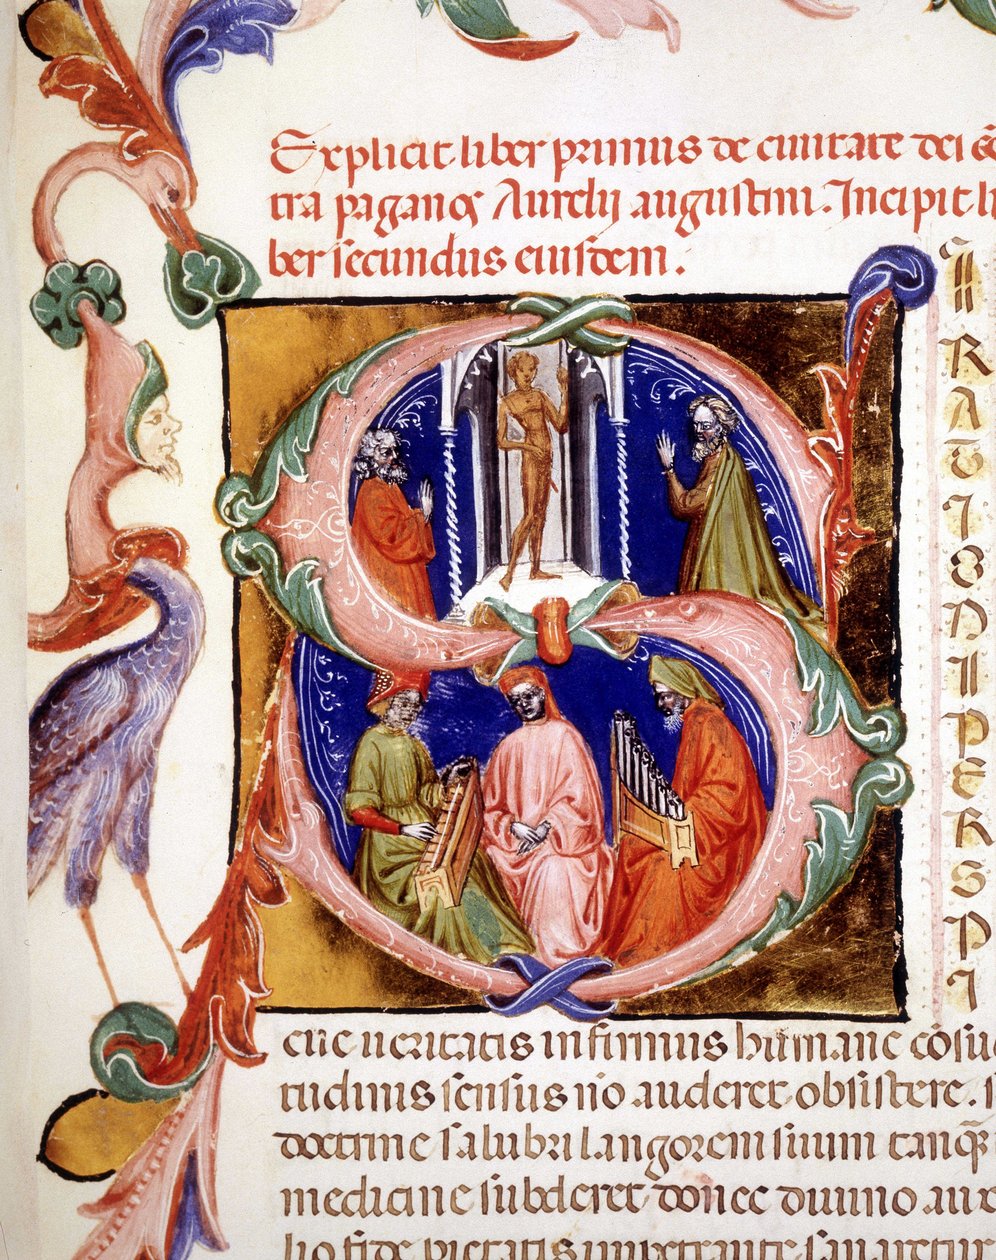 Explicit liber primus de ciuitate dei cō
tra paganos Aurelij augustini. Incipit li
ber secundus eiusdem.
I
R
A
T
I
O
N
I
P
E
R
S
P
I
cue ueritatis infirmus humane cōsu
tudinis sensus nō auderet obsistere. s
doctrine salubri langorem suum tanq̄
medicine subderet donec diuino aux
lio fide pietatis impetrante sanaretur